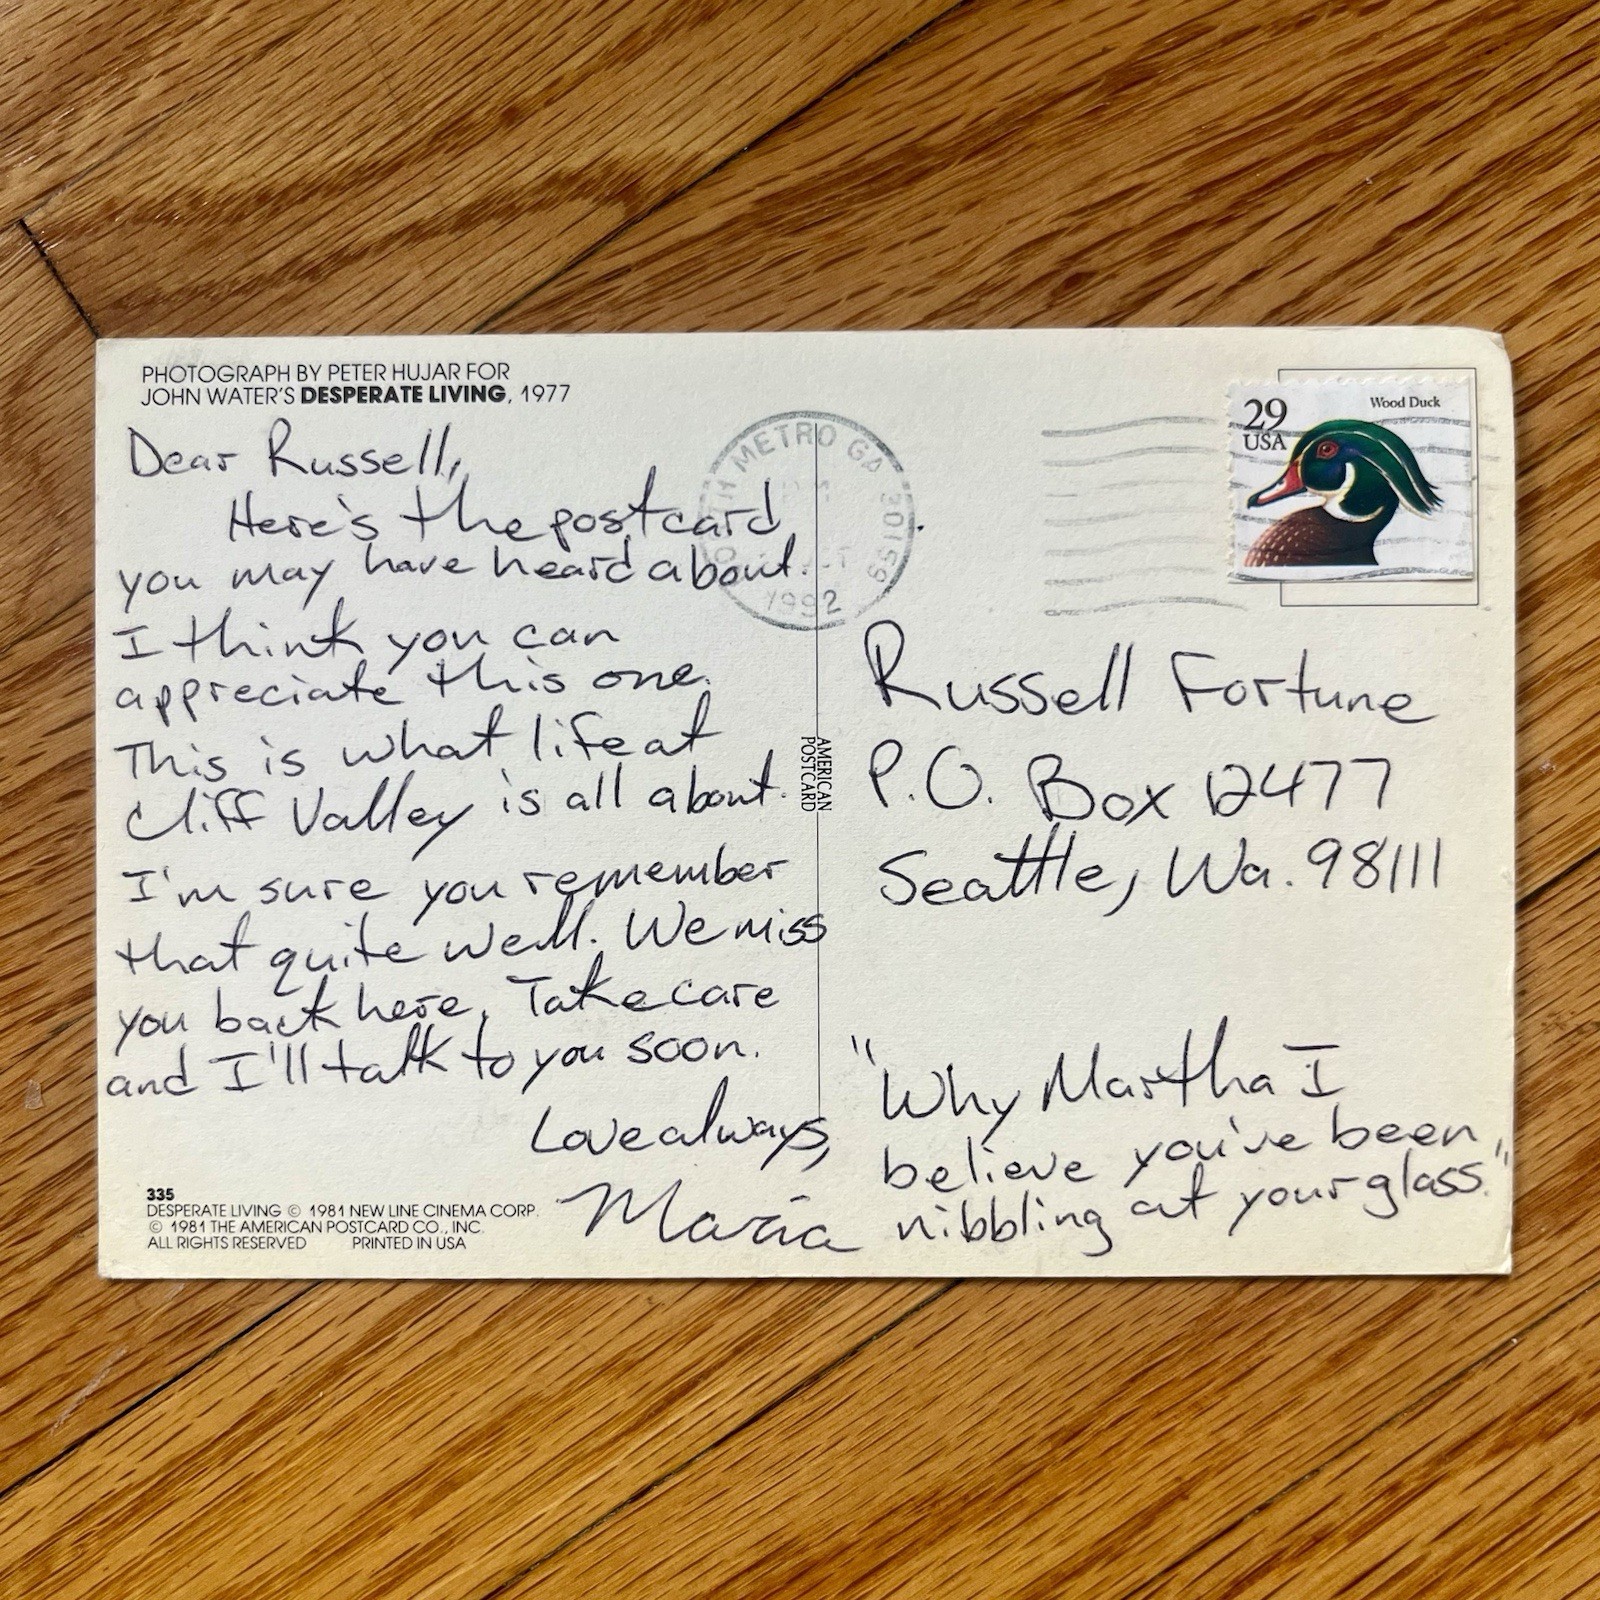 PHOTOGRAPH BY PETER HUJAR FOR
JOHN WATER'S DESPERATE LIVING, 1977
Dear Russell,
Here's the postcard
you may have heard about.
I think you can
appreciate this one.
This is what life at
Cliff Valley is all about.
I'm sure you remember
that quite well. We miss
you back here. Take care
and I'll talk to you soon.
Love always,
Maria
335
DESPERATE LIVING © 1981 NEW LINE CINEMA CORP.
© 1981 THE AMERICAN POSTCARD CO., INC.
ALL RIGHTS RESERVED PRINTED IN USA
AMERICAN
POSTCARD
METRO GA 30159
1992
29
USA
Wood Duck
Russell Fortune
P.O. Box 12477
Seattle, Wa. 98111
"Why Martha I
believe you've been
nibbling at your glass."